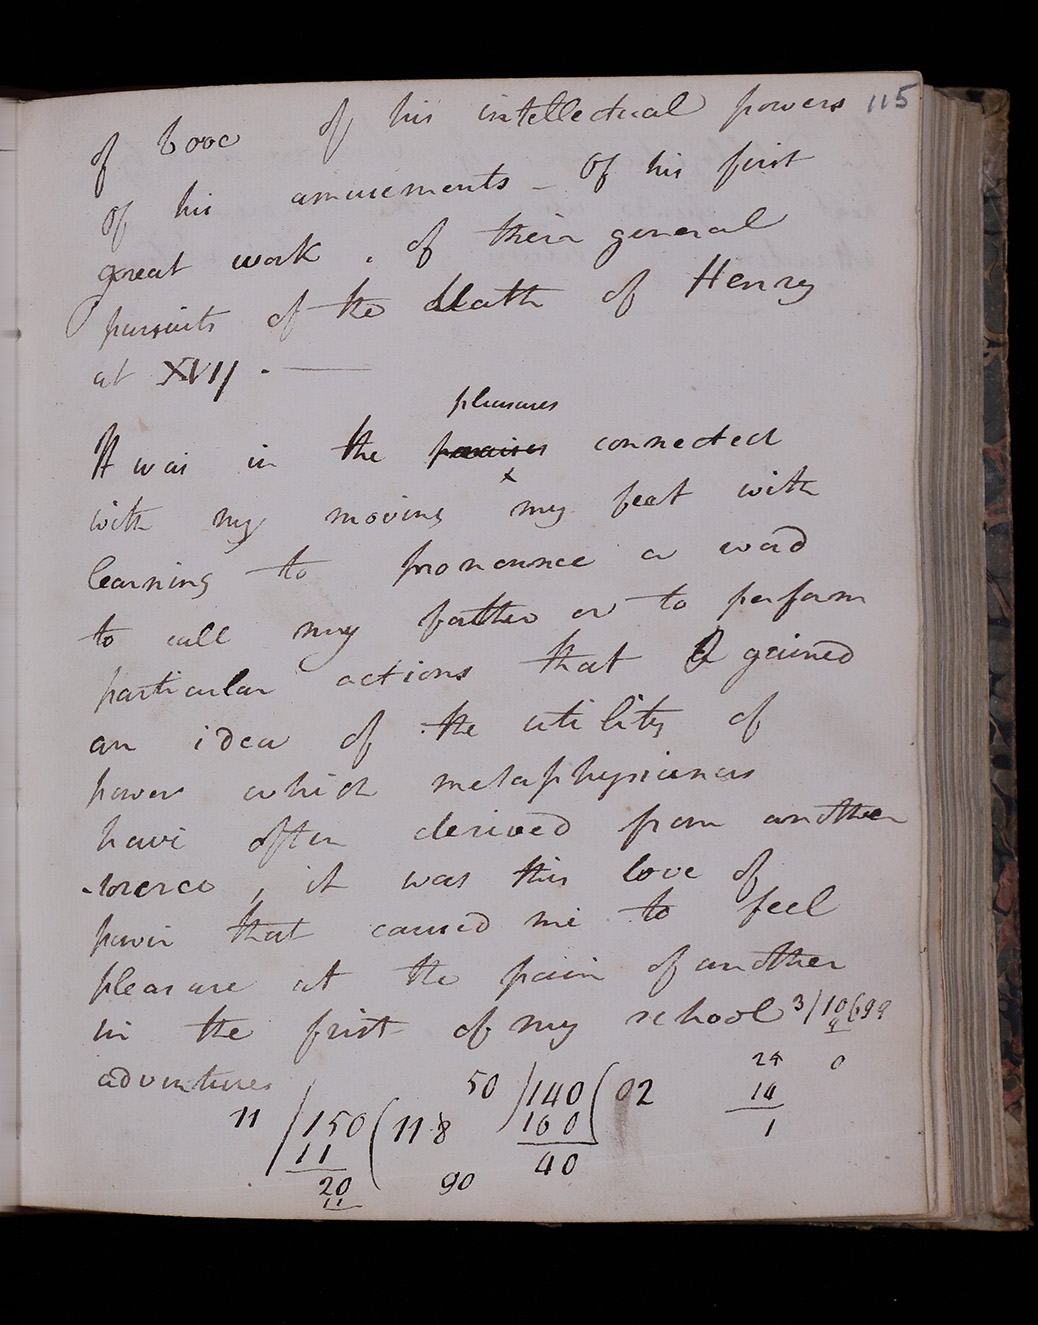 115
of love of his intellectual powers
of his amusements - Of his first
great work . of their general
pursuits of the death of Henry
at XVII . —
pleasures
It was in the connected
x
with my moving my feet with
learning to pronounce a word
to call my father or to perform
particular actions that I gained
an idea of the utility of
power which metaphysicians
have often derived from another
source , it was this love of
power that caused me to feel
pleasure at the pain of another
in the first of my school
adventures
3/10(699
9
0
24
14
1
50)140(02
160
40
11/150(118
11
20
11
90